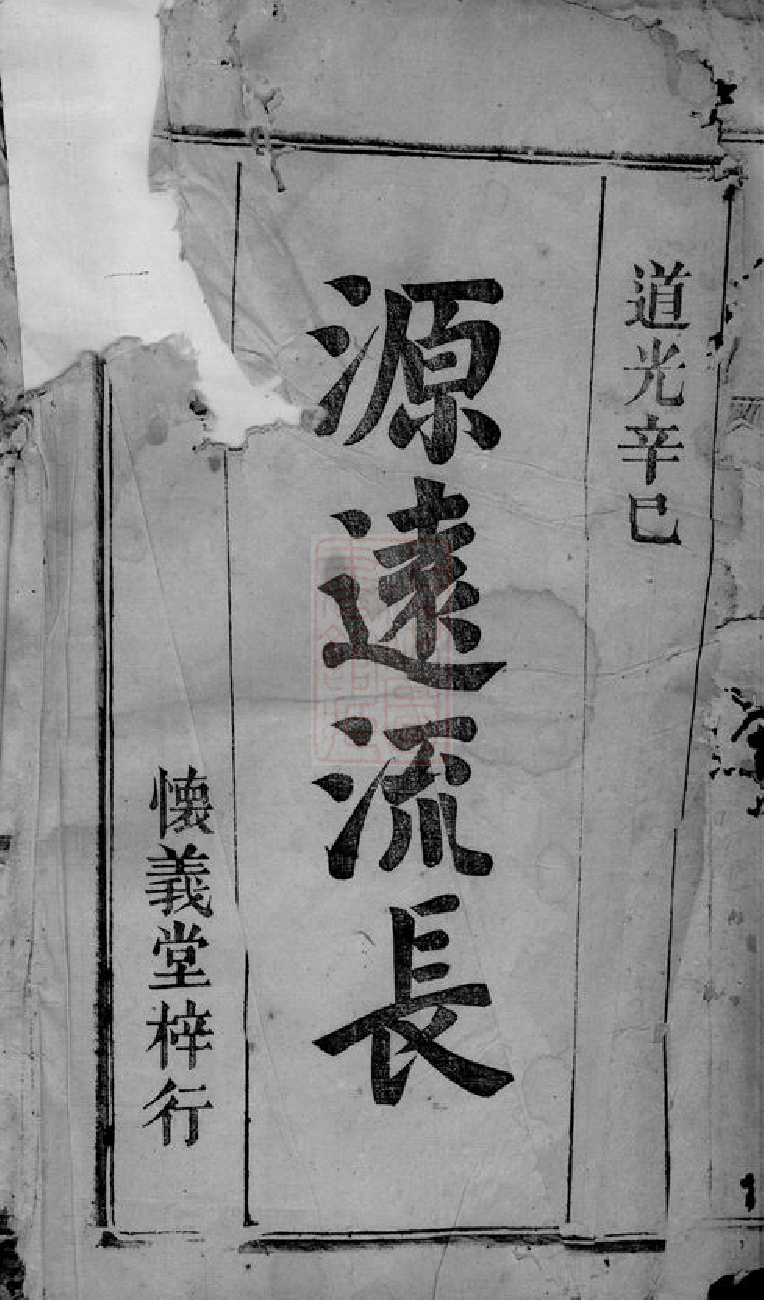 道光辛巳
源遠流長
懷義堂梓行